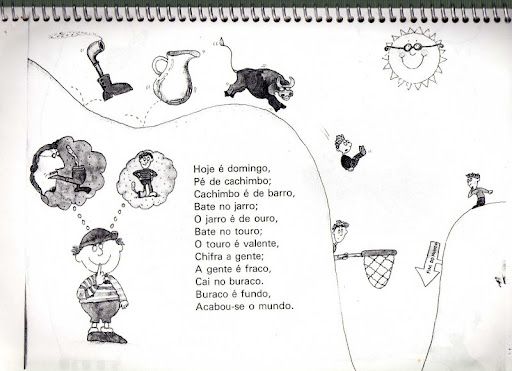 Hoje é domingo,
Pé de cachimbo;
Cachimbo é de barro,
Bate no jarro;
O jarro é de ouro,
Bate no touro;
O touro é valente,
Chifra a gente;
A gente é fraco,
Cai no buraco.
Buraco é fundo,
Acabou-se o mundo.